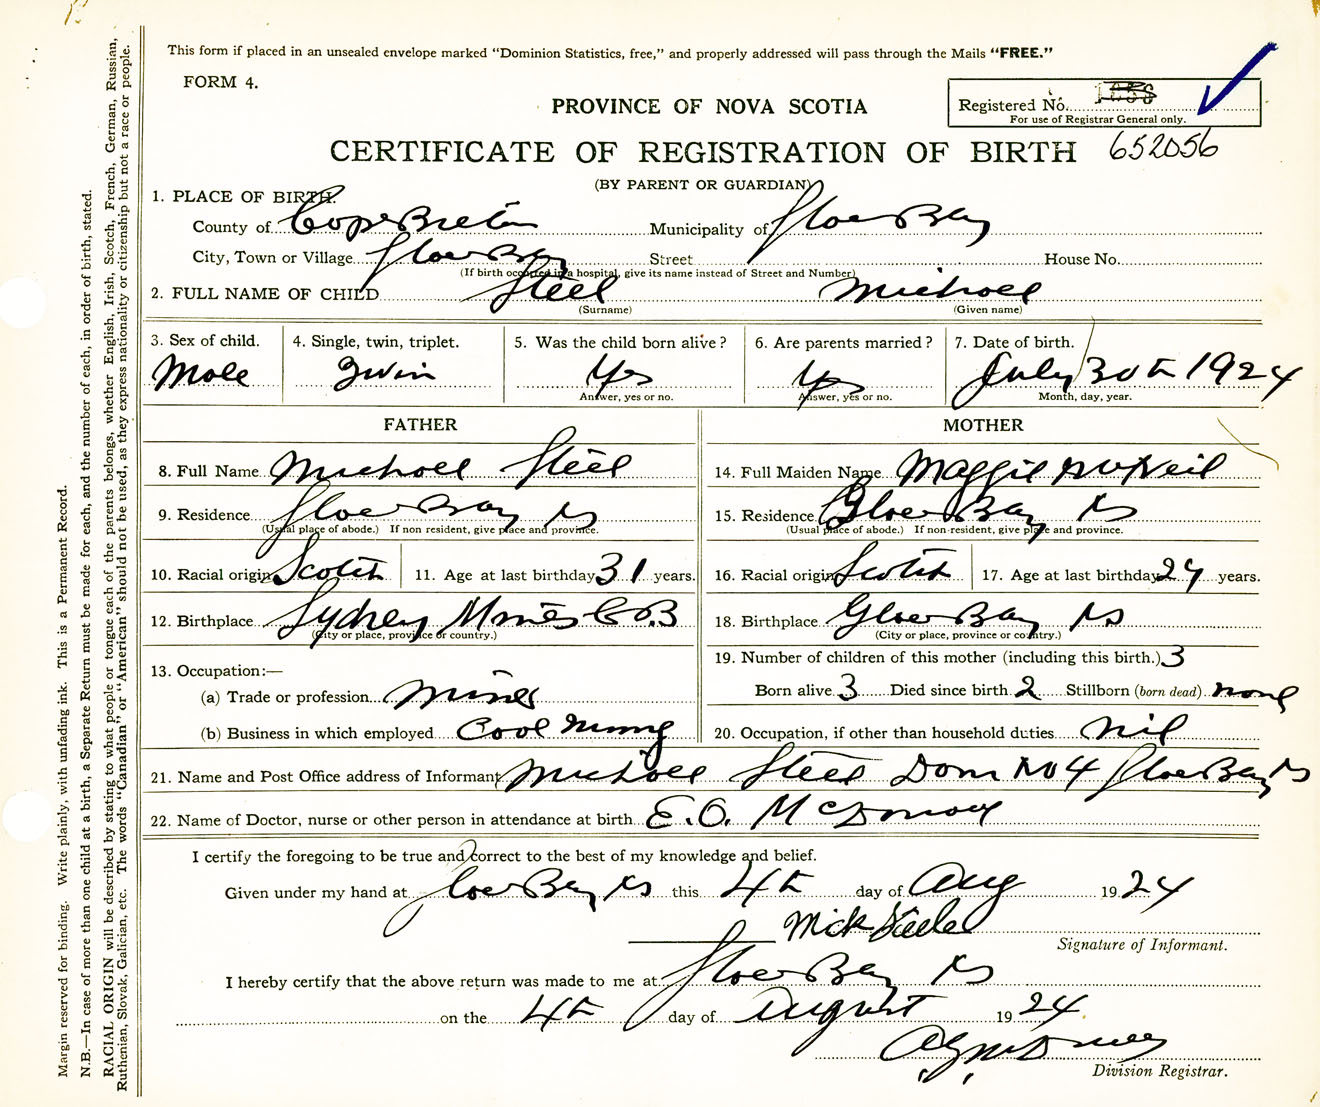 This form if placed in an unsealed envelope marked "Dominion Statistics, free," and properly addressed will pass through the Mails "FREE."
FORM 4.
PROVINCE OF NOVA SCOTIA
Registered No.
For use of Registrar General only.
CERTIFICATE OF REGISTRATION OF BIRTH 652056
(BY PARENT OR GUARDIAN)
1. PLACE OF BIRTH.
County of Cape Breton Municipality of Glace Bay
City, Town or Village Glace Bay Street House No.
(If birth occurred in a hospital, give its name instead of Street and Number)
2. FULL NAME OF CHILD Steel Michael
(Surname) (Given name)
3. Sex of child. 4. Single, twin, triplet. 5. Was the child born alive? 6. Are parents married? 7. Date of birth.
Male Twin Yes Yes July 30th 1924
Answer, yes or no. Answer, yes or no. Month, day, year.
FATHER MOTHER
8. Full Name Michael Steel 14. Full Maiden Name Maggie McNeil
9. Residence Glace Bay NS 15. Residence Glace Bay NS
(Usual place of abode.) If non resident, give place and province. (Usual place of abode.) If non-resident, give place and province.
10. Racial origin Scotch 11. Age at last birthday 31 years. 16. Racial origin Scotch 17. Age at last birthday 24 years.
12. Birthplace Sydney Mines C.B 18. Birthplace Glace Bay NS
(City or place, province or country.) (City or place, province or country.)
13. Occupation:— 19. Number of children of this mother (including this birth.) 3
(a) Trade or profession Miner Born alive 3 Died since birth 2 Stillborn (born dead) none
(b) Business in which employed Coal Mining 20. Occupation, if other than household duties nil
21. Name and Post Office address of Informant Michael Steel Dom No 4 Glace Bay NS
22. Name of Doctor, nurse or other person in attendance at birth E.O. McDonald
I certify the foregoing to be true and correct to the best of my knowledge and belief.
Given under my hand at Glace Bay NS this 4th day of Aug 1924
Mick Steele
Signature of Informant.
I hereby certify that the above return was made to me at Glace Bay NS
on the 4th day of August 1924
Division Registrar.
Margin reserved for binding. Write plainly, with unfading ink. This is a Permanent Record.
N.B.—In case of more than one child at a birth, a Separate Return must be made for each, and the number of each, in order of birth, stated.
RACIAL ORIGIN will be described by stating to what people or tongue each of the parents belongs, whether English, Irish, Scotch, French, German, Russian,
Ruthenian, Slovak, Galician, etc. The words "Canadian" or "American" should not be used, as they express nationality or citizenship but not a race or people.